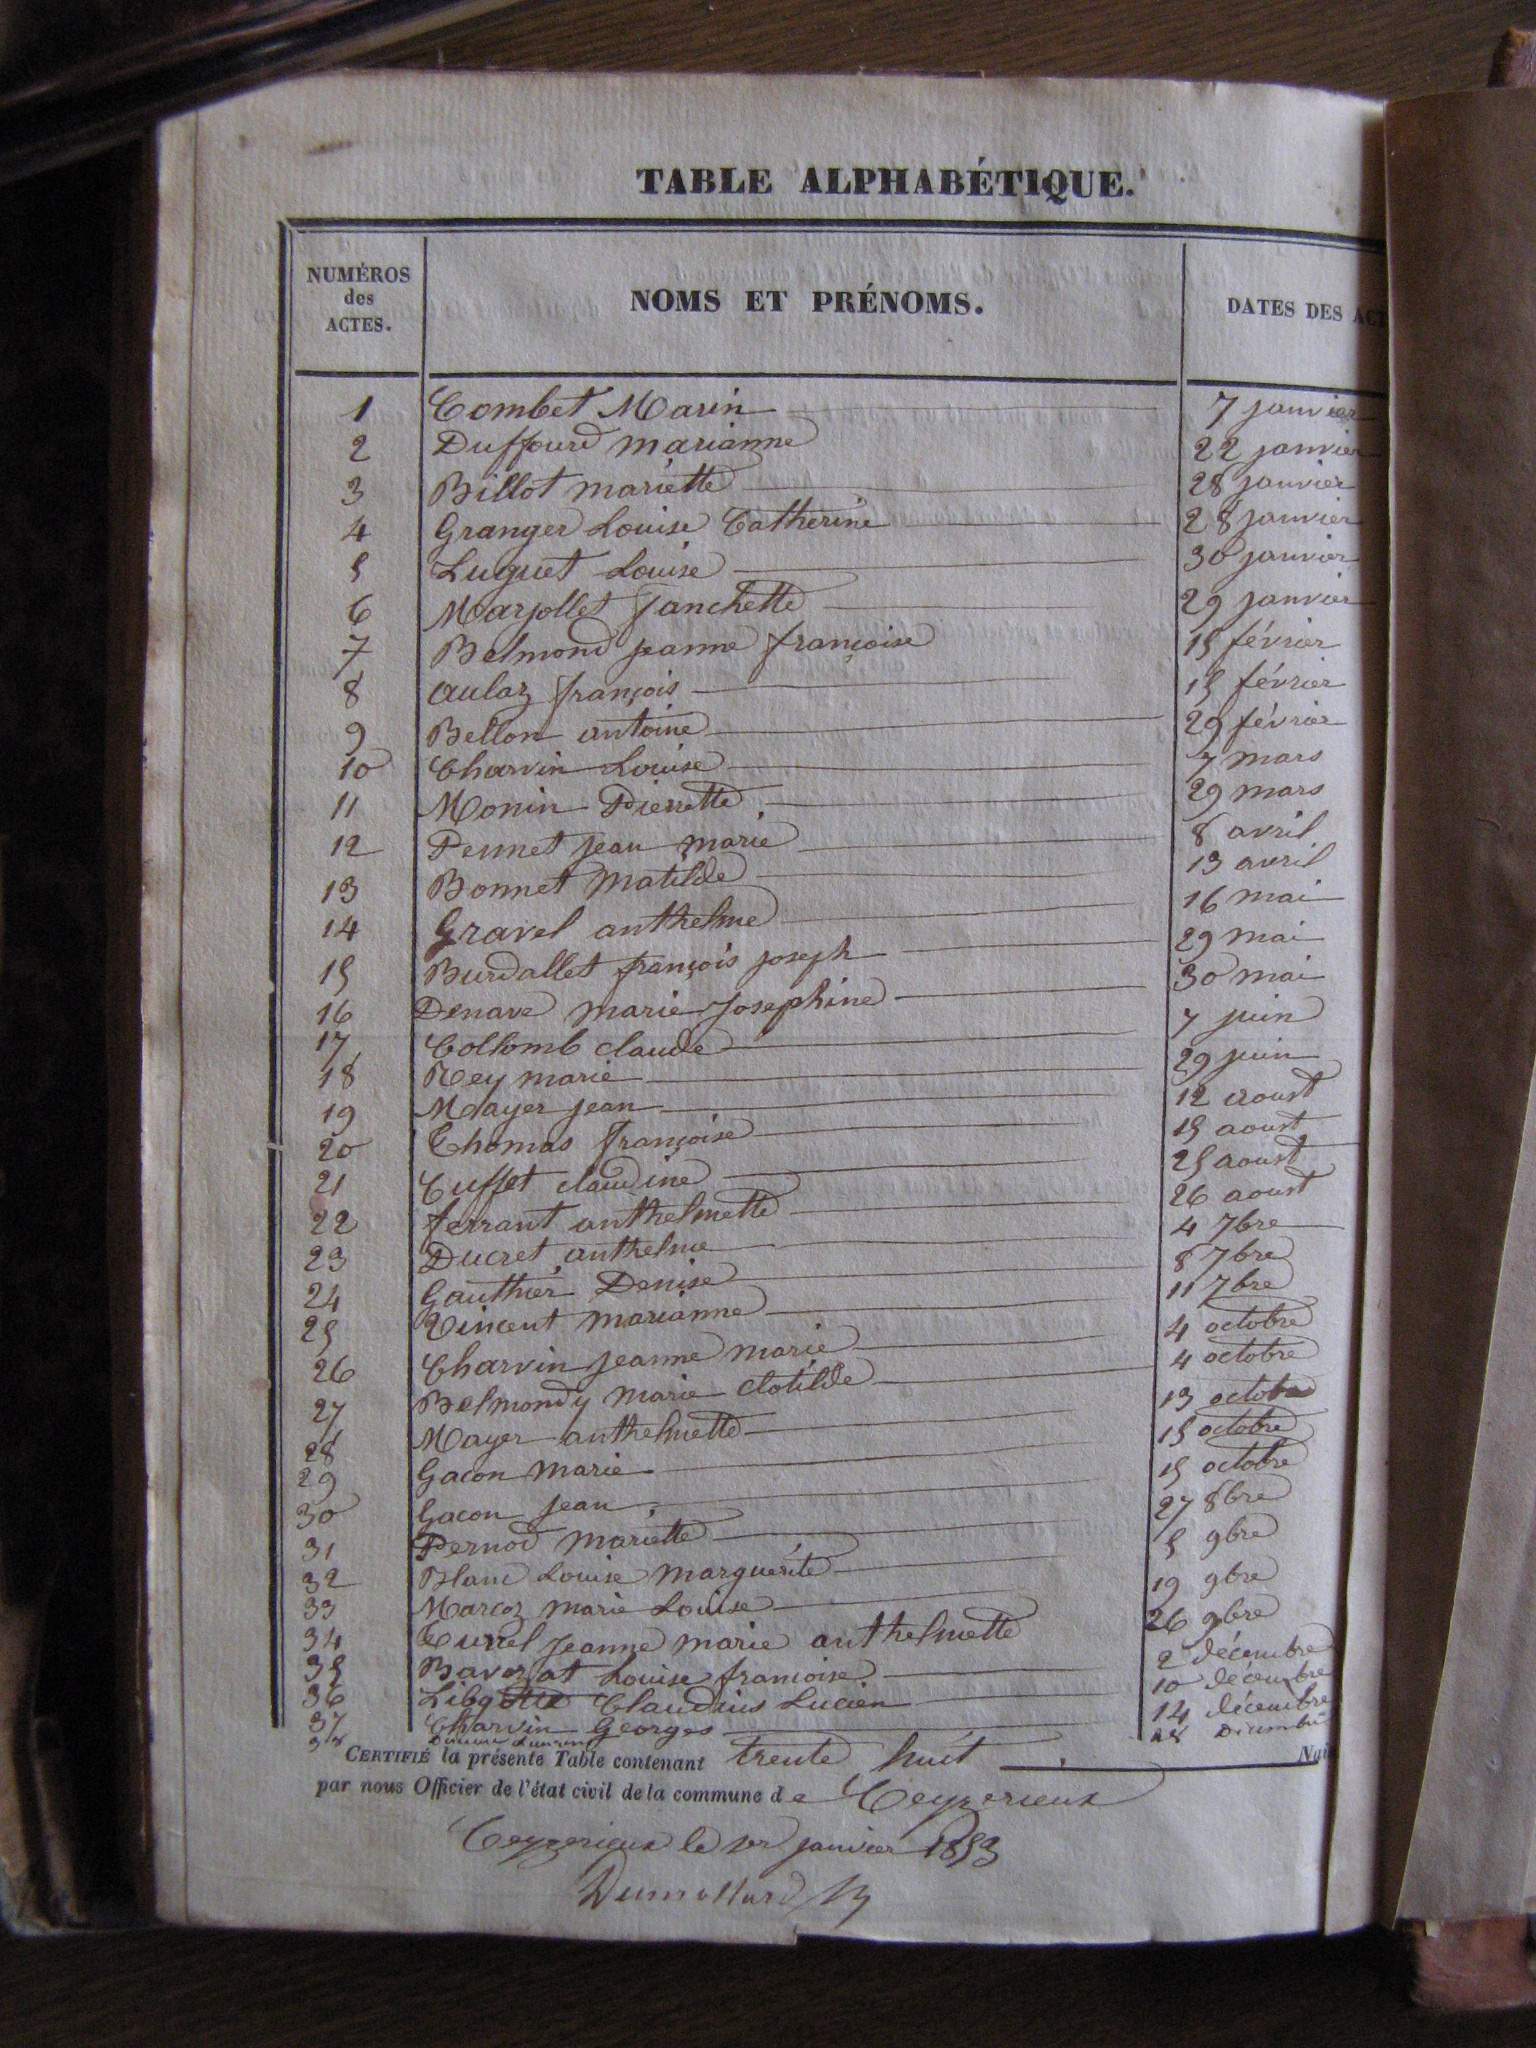 TABLE ALPHABÉTIQUE.
NUMÉROS des ACTES. NOMS ET PRÉNOMS. DATES DES ACT
1 Combet Marin 7 janvier
2 Duffourd marianne 22 janvier
3 Billot mariette 28 janvier
4 Granger Louise Catherine 28 janvier
5 Luguet Louise 30 janvier
6 Marjollet Janchette 29 janvier
7 Belmond jeanne françoise 15 février
8 aulaz françois 15 février
9 Bellon antoine 29 février
10 Charvin Louise 7 mars
11 Monin Pierrette 29 mars
12 Pennet jean marie 8 avril
13 Bonnet Matilde 13 avril
14 Gravel anthelme 16 mai
15 Burdallet françois joseph 29 mai
16 Denave marie Josephine 30 mai
17 Collomb claude 7 juin
18 Rey marie 29 juin
19 Mayer jean 12 aoust
20 Thomas françoise 15 aoust
21 Cuffet claudine 25 aoust
22 ferrant anthelmette 26 aoust
23 Ducret anthelme 4 7bre
24 Gauthier Denise 8 7bre
25 Vincent marianne 11 7bre
26 Charvin jeanne marie 4 octobre
27 Belmondy marie clotilde 4 octobre
28 Mayer anthelmette 13 octobre
29 Gacon marie 15 octobre
30 Gacon jean 15 octobre
31 Pernod mariette 27 8bre
32 Blanc Louise marguerite 5 9bre
33 Marcoz marie Louise 19 9bre
34 Curtel jeanne marie anthelmette 26 9bre
35 Bavozat Louise francoise 2 décembre
36 Claudius Lucien 10 décembre
37 Charvin Georges 14 décembre
38 28 Décembre
CERTIFIÉ la présente Table contenant trente huit Nai
par nous Officier de l'état civil de la commune de Ceyzerieux
Ceyzerieux le 1er janvier 1853
Dumollard